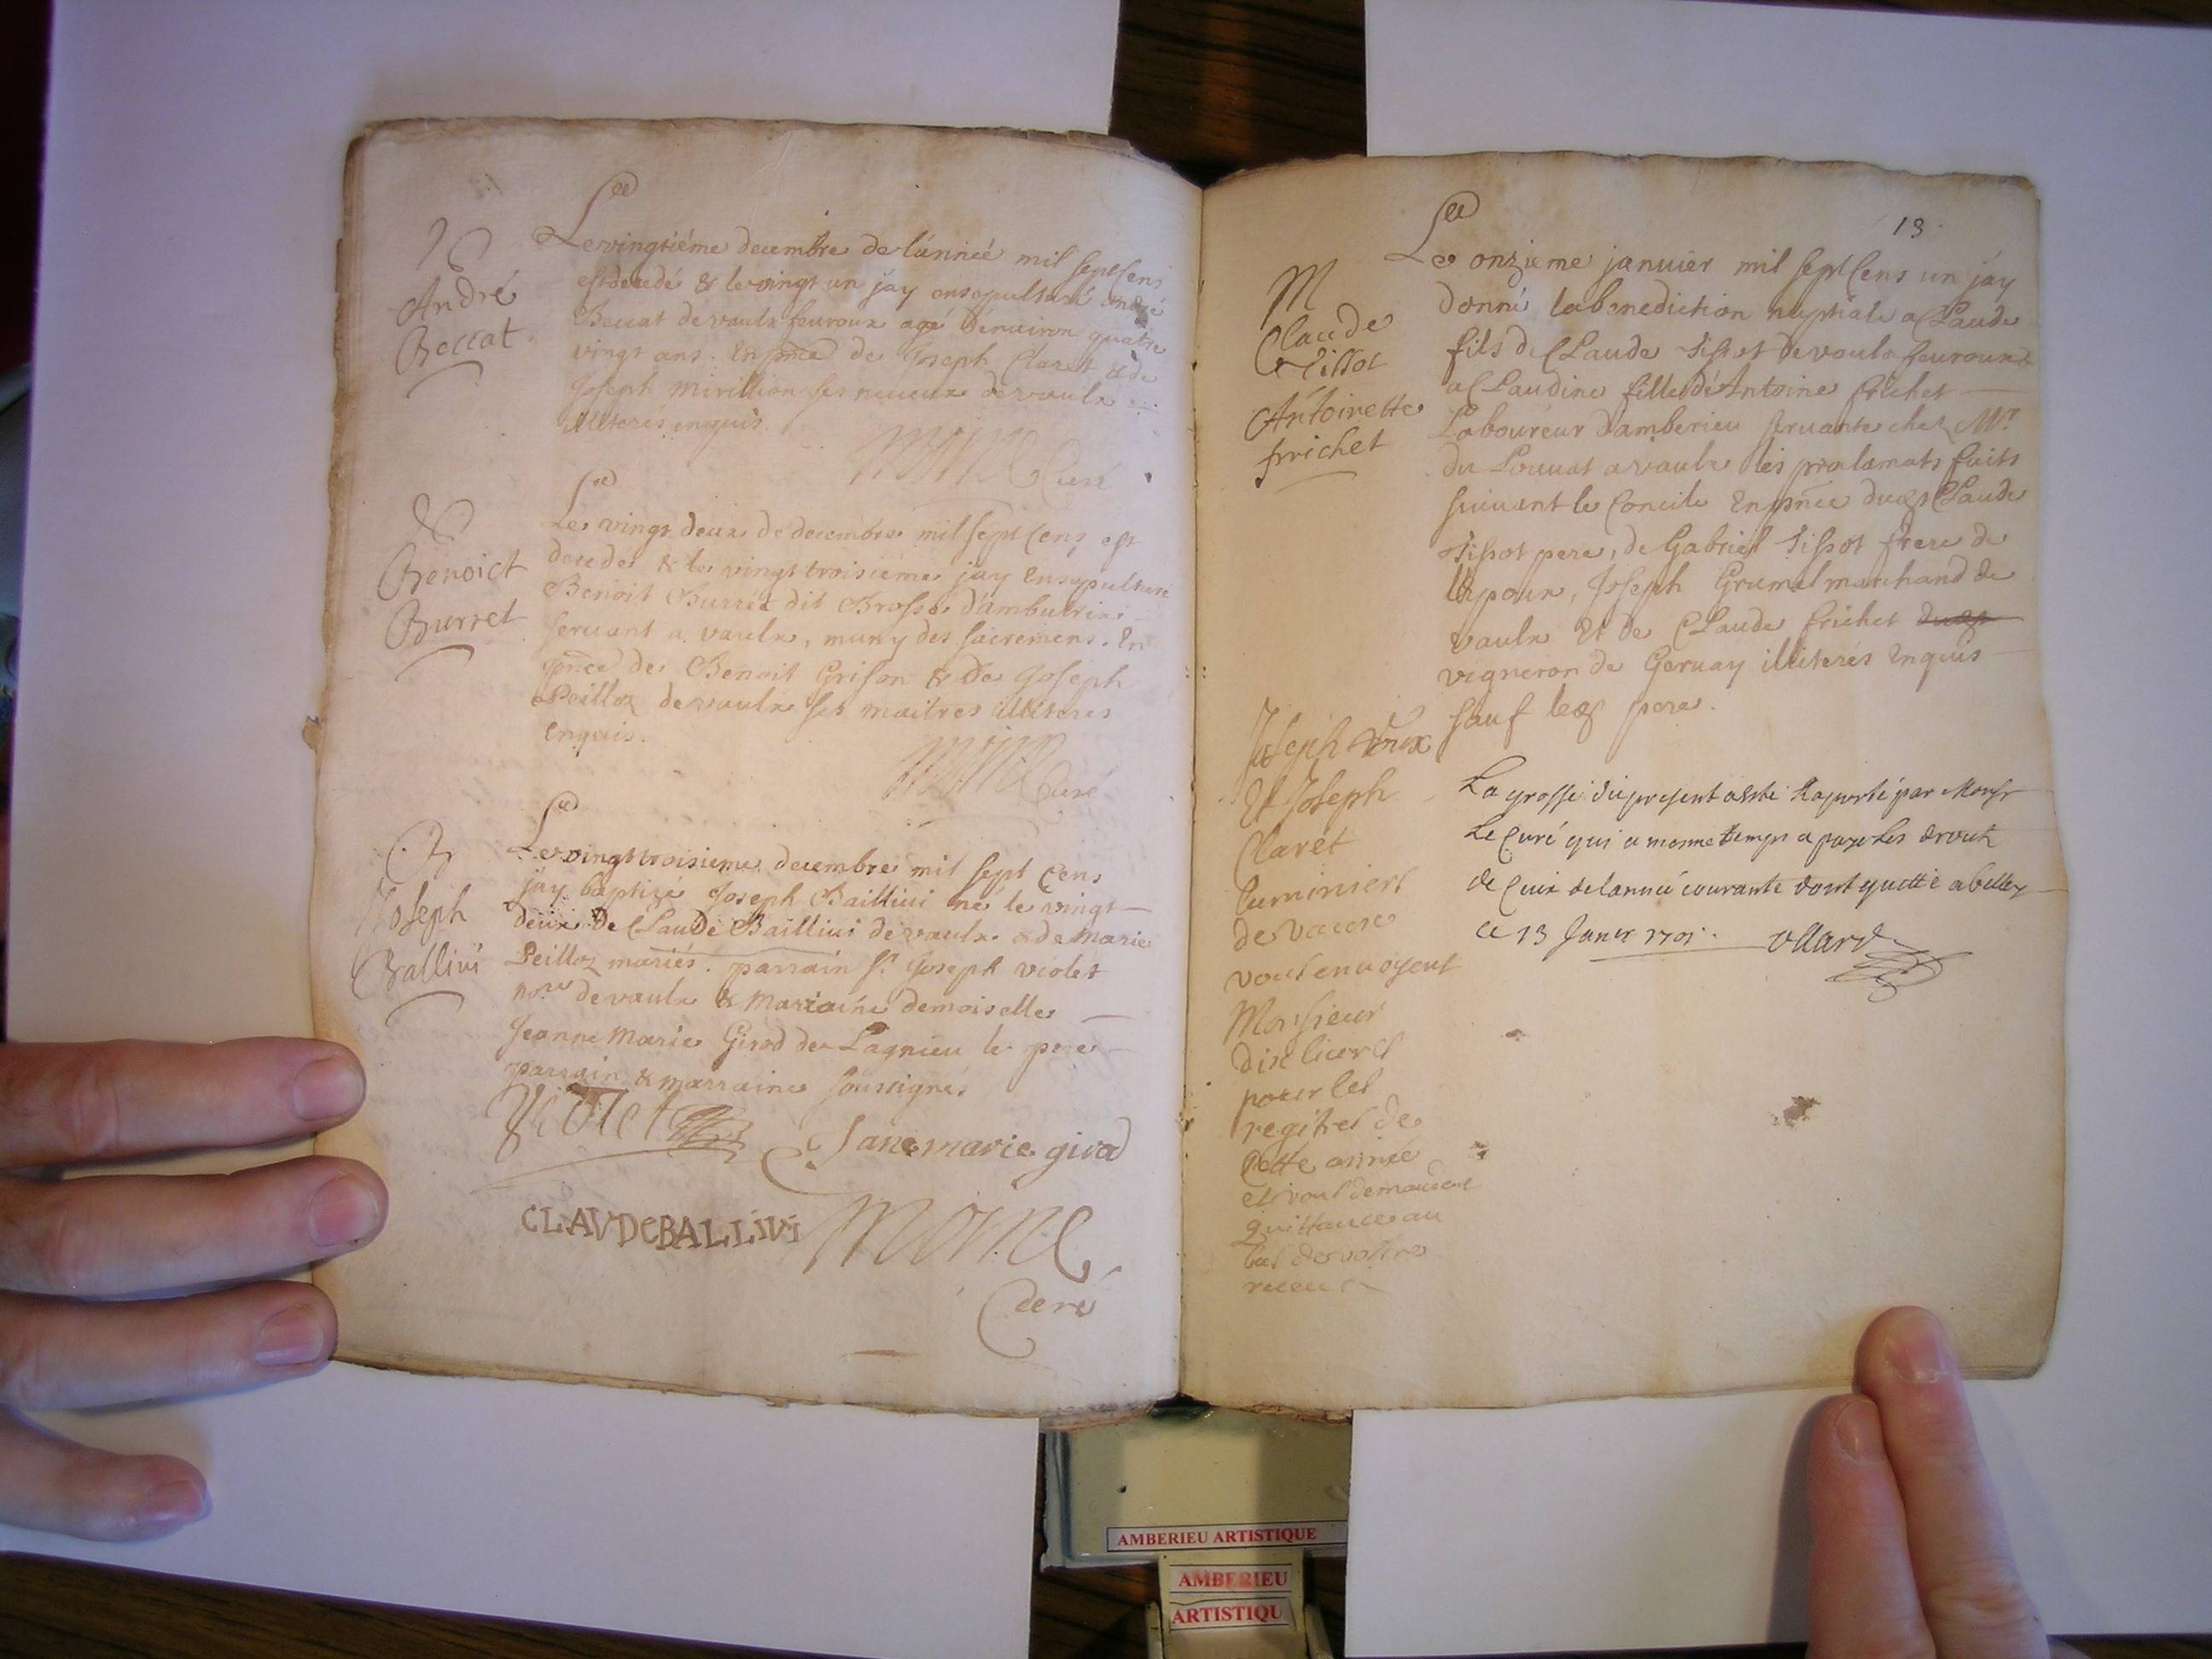 André
Beccat
Le vingtiéme decembre de lánneé mil sept Cens
est decedé & le vingt un jáy ensepulturé André
Beccat de vaulx feuroux agé d'enuiron quatre
vingt ans. En pnce de Joseph Claret & de
Joseph Mirillion ses neueux de vaulx
illiterés enquis.
Moine Curé
Benoict
Burret
Le vingt deux de decembre mil sept Cens est
decedé & le vingt troisieme jay Ensepulturé
Benoit Burret dit Brosse d'ambutrix
seruant a vaulx, muny des sacremens. En
pnce de Benoit Grison & de Joseph
Peilloz de vaulx ses maitres illiteres
Enquis.
Moine Curé
B
Joseph
Ballivi
Le vingt troisieme decembre mil sept Cens
jay baptizé Joseph Baillivi né le vingt
deux de Claude Baillivi de vaulx & de Marie
Peilloz mariés. parrain Sr. Joseph violet
nore de vaulx & Marraine demoiselle
Jeanne Marie Girod de Lagnieu le pere
parrain & marraine soussignés
Violet
Jane marie girod
CLAVDE BALLIVI
Moine
Curé
13
M
Claude
Tissot
Antoinette
frichet
Le onzieme januier mil sept Cens un jáy
donné la benediction nuptiale a Claude
fils de Claude Tissot de vaulx feuroux &
a Claudine fille de Antoine frichet
Laboureur d'amberieu seruante chez Mr
du Louuat a vaulx les proclamats faits
suiuant le Concile En pnce dud Claude
Tissot pere, de Gabriel Tissot frere de
l'Epoux, Joseph Grumel marchand de
vaulx Et de Claude frichet dud
vigneron de Geruay illiterés Enquis
sauf led pere.
Joseph
Et Joseph
Claret
luminiers
de vaux
vous enuoyent
Monsieur
dix liures
pour les
regitres de
Cette année
et vous demandent
quittance au
bas de votre
receu
La grosse du present a esté Raporté par Monsr
Le Curé qui a mesme temps a payé les droits
de Ceux de lannée courante dont quitté a belley
ce 13 Januer 1701. ollard
AMBERIEU ARTISTIQUE
AMBERIEU
ARTISTIQU